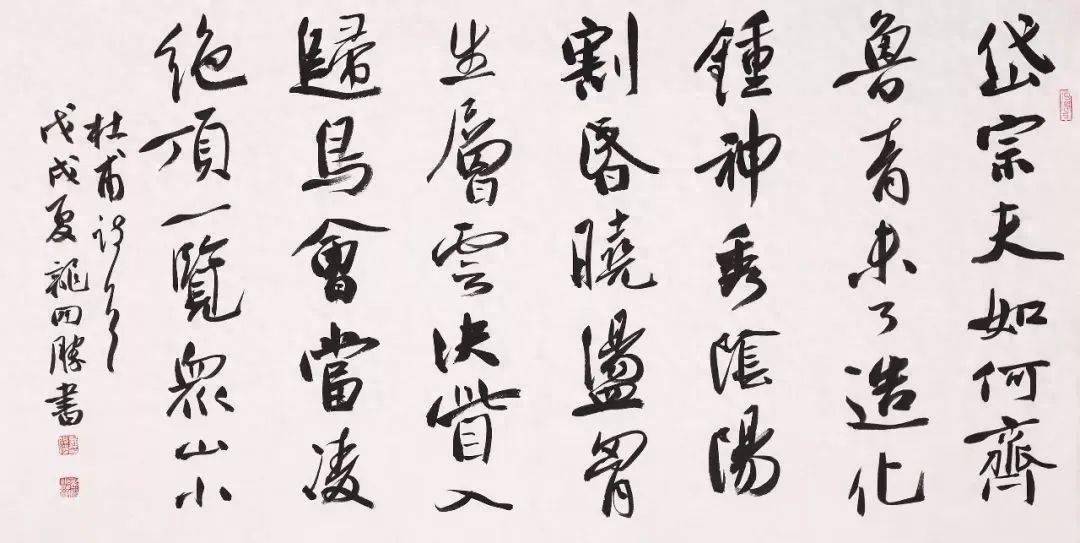 岱宗夫如何齊
魯青未了造化
鍾神秀陰陽
割昏曉盪胷
生層雲決眥入
歸鳥會當凌
絶頂一覽衆山小
杜甫詩
戊戌夏龍四勝書